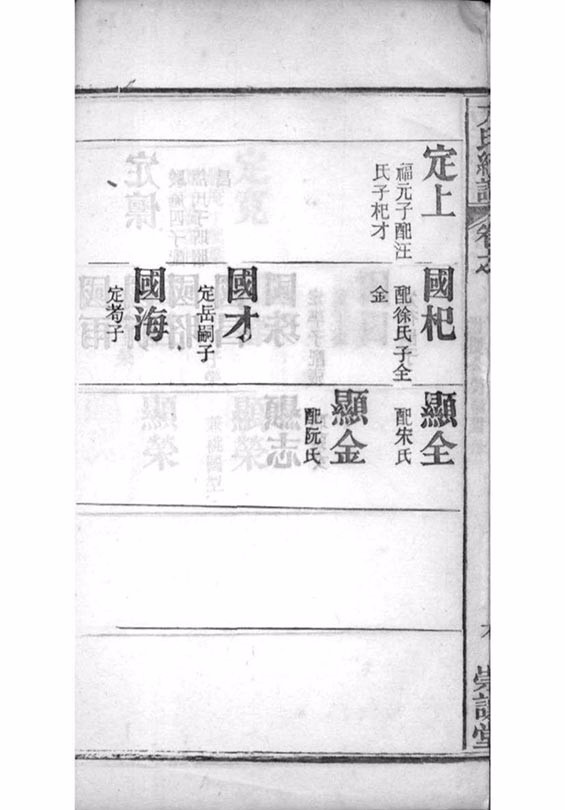 定上
福元子配汪
氏子杞才
國杞
配徐氏子全
金
國才
定岳嗣子
國海
定荀子
顯全
配宋氏
顯金
配阮氏